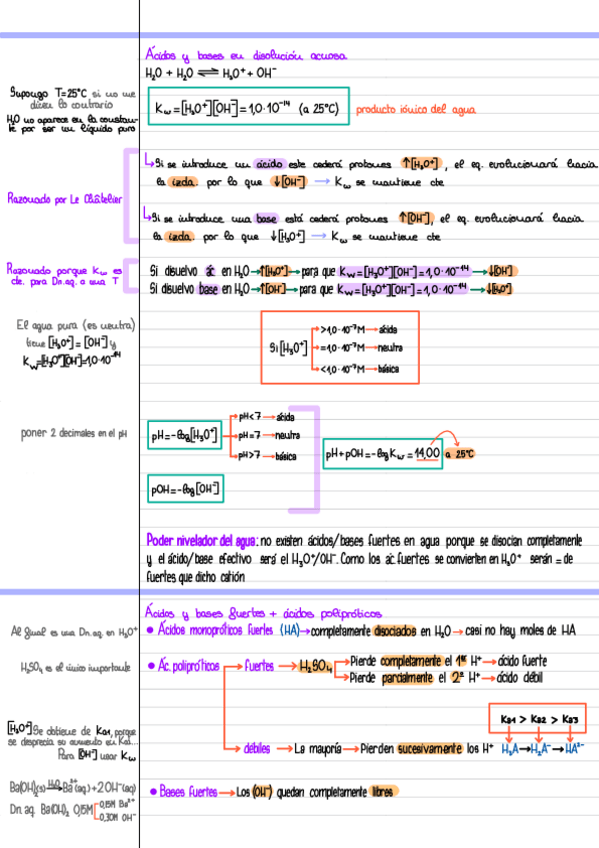 Ácidos y bases en disolución acuosa
H₂O + H₂O ⇌ H₃O⁺ + OH⁻
Supongo T=25°C si no me
dicen lo contrario
H₂O no aparece en la constan-
te por ser un líquido puro
Kw = [H₃O⁺][OH⁻] = 1,0·10⁻¹⁴ (a 25°C)
producto iónico del agua
Razonado por Le Châtelier
Si se introduce un ácido este cederá protones ↑[H₃O⁺], el eq. evolucionará hacia
la izda. por lo que ↓[OH⁻] → Kw se mantiene cte
Si se introduce una base está cederá protones ↑[OH⁻], el eq. evolucionará hacia
la izda. por lo que ↓[H₃O⁺] → Kw se mantiene cte
Razonado porque Kw es
cte. para Dn.aq. a una T
Si disuelvo ác en H₂O→↑[H₃O⁺]→para que Kw=[H₃O⁺][OH⁻]=1,0·10⁻¹⁴→↓[OH⁻]
Si disuelvo base en H₂O→↑[OH⁻]→para que Kw=[H₃O⁺][OH⁻]=1,0·10⁻¹⁴→↓[H₃O⁺]
El agua pura (es neutra)
tiene [H₃O⁺] = [OH⁻] y
Kw=[H₃O⁺][OH⁻]=1,0·10⁻¹⁴
Si [H₃O⁺]
>1,0·10⁻⁷M→ácida
=1,0·10⁻⁷M→neutra
<1,0·10⁻⁷M→básica
poner 2 decimales en el pH
pH=-log[H₃O⁺]
pH<7→ácida
pH=7→neutra
pH>7→básica
pH+pOH=-logKw=14,00 a 25°C
pOH=-log[OH⁻]
Poder nivelador del agua: no existen ácidos/bases fuertes en agua porque se disocian completamente
y el ácido/base efectivo será el H₃O⁺/OH⁻. Como los ác. fuertes se convierten en H₃O⁺ serán = de
fuertes que dicho catión
Ácidos y bases fuertes + ácidos polipróticos
Al igual es una Dn.aq. en H₃O⁺
• Ácidos monopróticos fuertes (HA)→completamente disociados en H₂O→casi no hay moles de HA
H₂SO₄ es el único importante
• Ác. polipróticos → fuertes → H₂SO₄
Pierde completamente el 1er H⁺→ácido fuerte
Pierde parcialmente el 2º H⁺→ácido débil
Ka1 > Ka2 > Ka3
[H₃O⁺] Se obtiene de Ka1, porque
se desprecia su aumento en Ka2...
Para [OH⁻] usar Kw
débiles → La mayoría→Pierden sucesivamente los H⁺ H₃A→H₂A⁻→HA²⁻
Ba(OH)₂(s) H₂O→Ba²⁺(aq)+2OH⁻(aq)
Dn. aq. Ba(OH)₂ 0,15M
0,15M Ba²⁺
0,30M OH⁻
• Bases fuertes→Los (OH⁻) quedan completamente libres